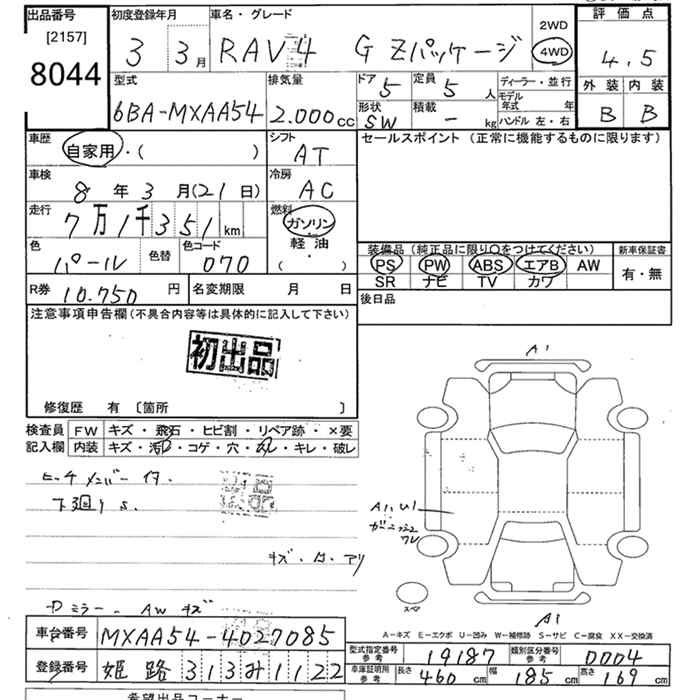 出品番号 初度登録年月 車名・グレード 2WD 評価点
[2157]
8044
3 3月 RAV4 G Zパッケージ 4WD 4.5
型式 排気量 ドア 定員 ディーラー・並行 外装 内装
6BA-MXAA54 2.000cc 5 5人 モデル年式 年 B B
形状 積載 ハンドル 左・右
SW - kg
車歴 シフト セールスポイント (正常に機能するものに限ります)
自家用・( ) AT
車検 冷房
8年3月(21日) AC
走行 燃料
7万1千351km ガソリン・軽油・( )
色 色替 色コード 装備品(純正品に限り〇をつけてください) 新車保証書
パール 070 PS PW ABS エアB AW 有・無
SR ナビ TV カワ
R券 10.750円 名変期限 月 日 後日品
注意事項申告欄(不具合内容等は具体的に記入して下さい)
初出品
修復歴 有 〔箇所 〕
検査員 FW キズ・飛石・ヒビ割・リペア跡・×要
記入欄 内装 キズ・汚・コゲ・穴・スレ・キレ・破レ
A1
ヒッチメンバー付.
下廻りS.
A1, U1
ガーニッシュ
ワレ
キズ・ロ・アリ
スペア
Dミラー AW キズ
A1
A-キズ E-エクボ U-凹み W-補修跡 S-サビ C-腐食 XX-交換済
車台番号 MXAA54-4027085
型式指定番号 参考 19187 類別区分番号 参考 0004
登録番号 姫路 313 み 1122
車庫証明用 参考 長さ 460cm 幅 185cm 高さ 169cm
希望出品コーナー